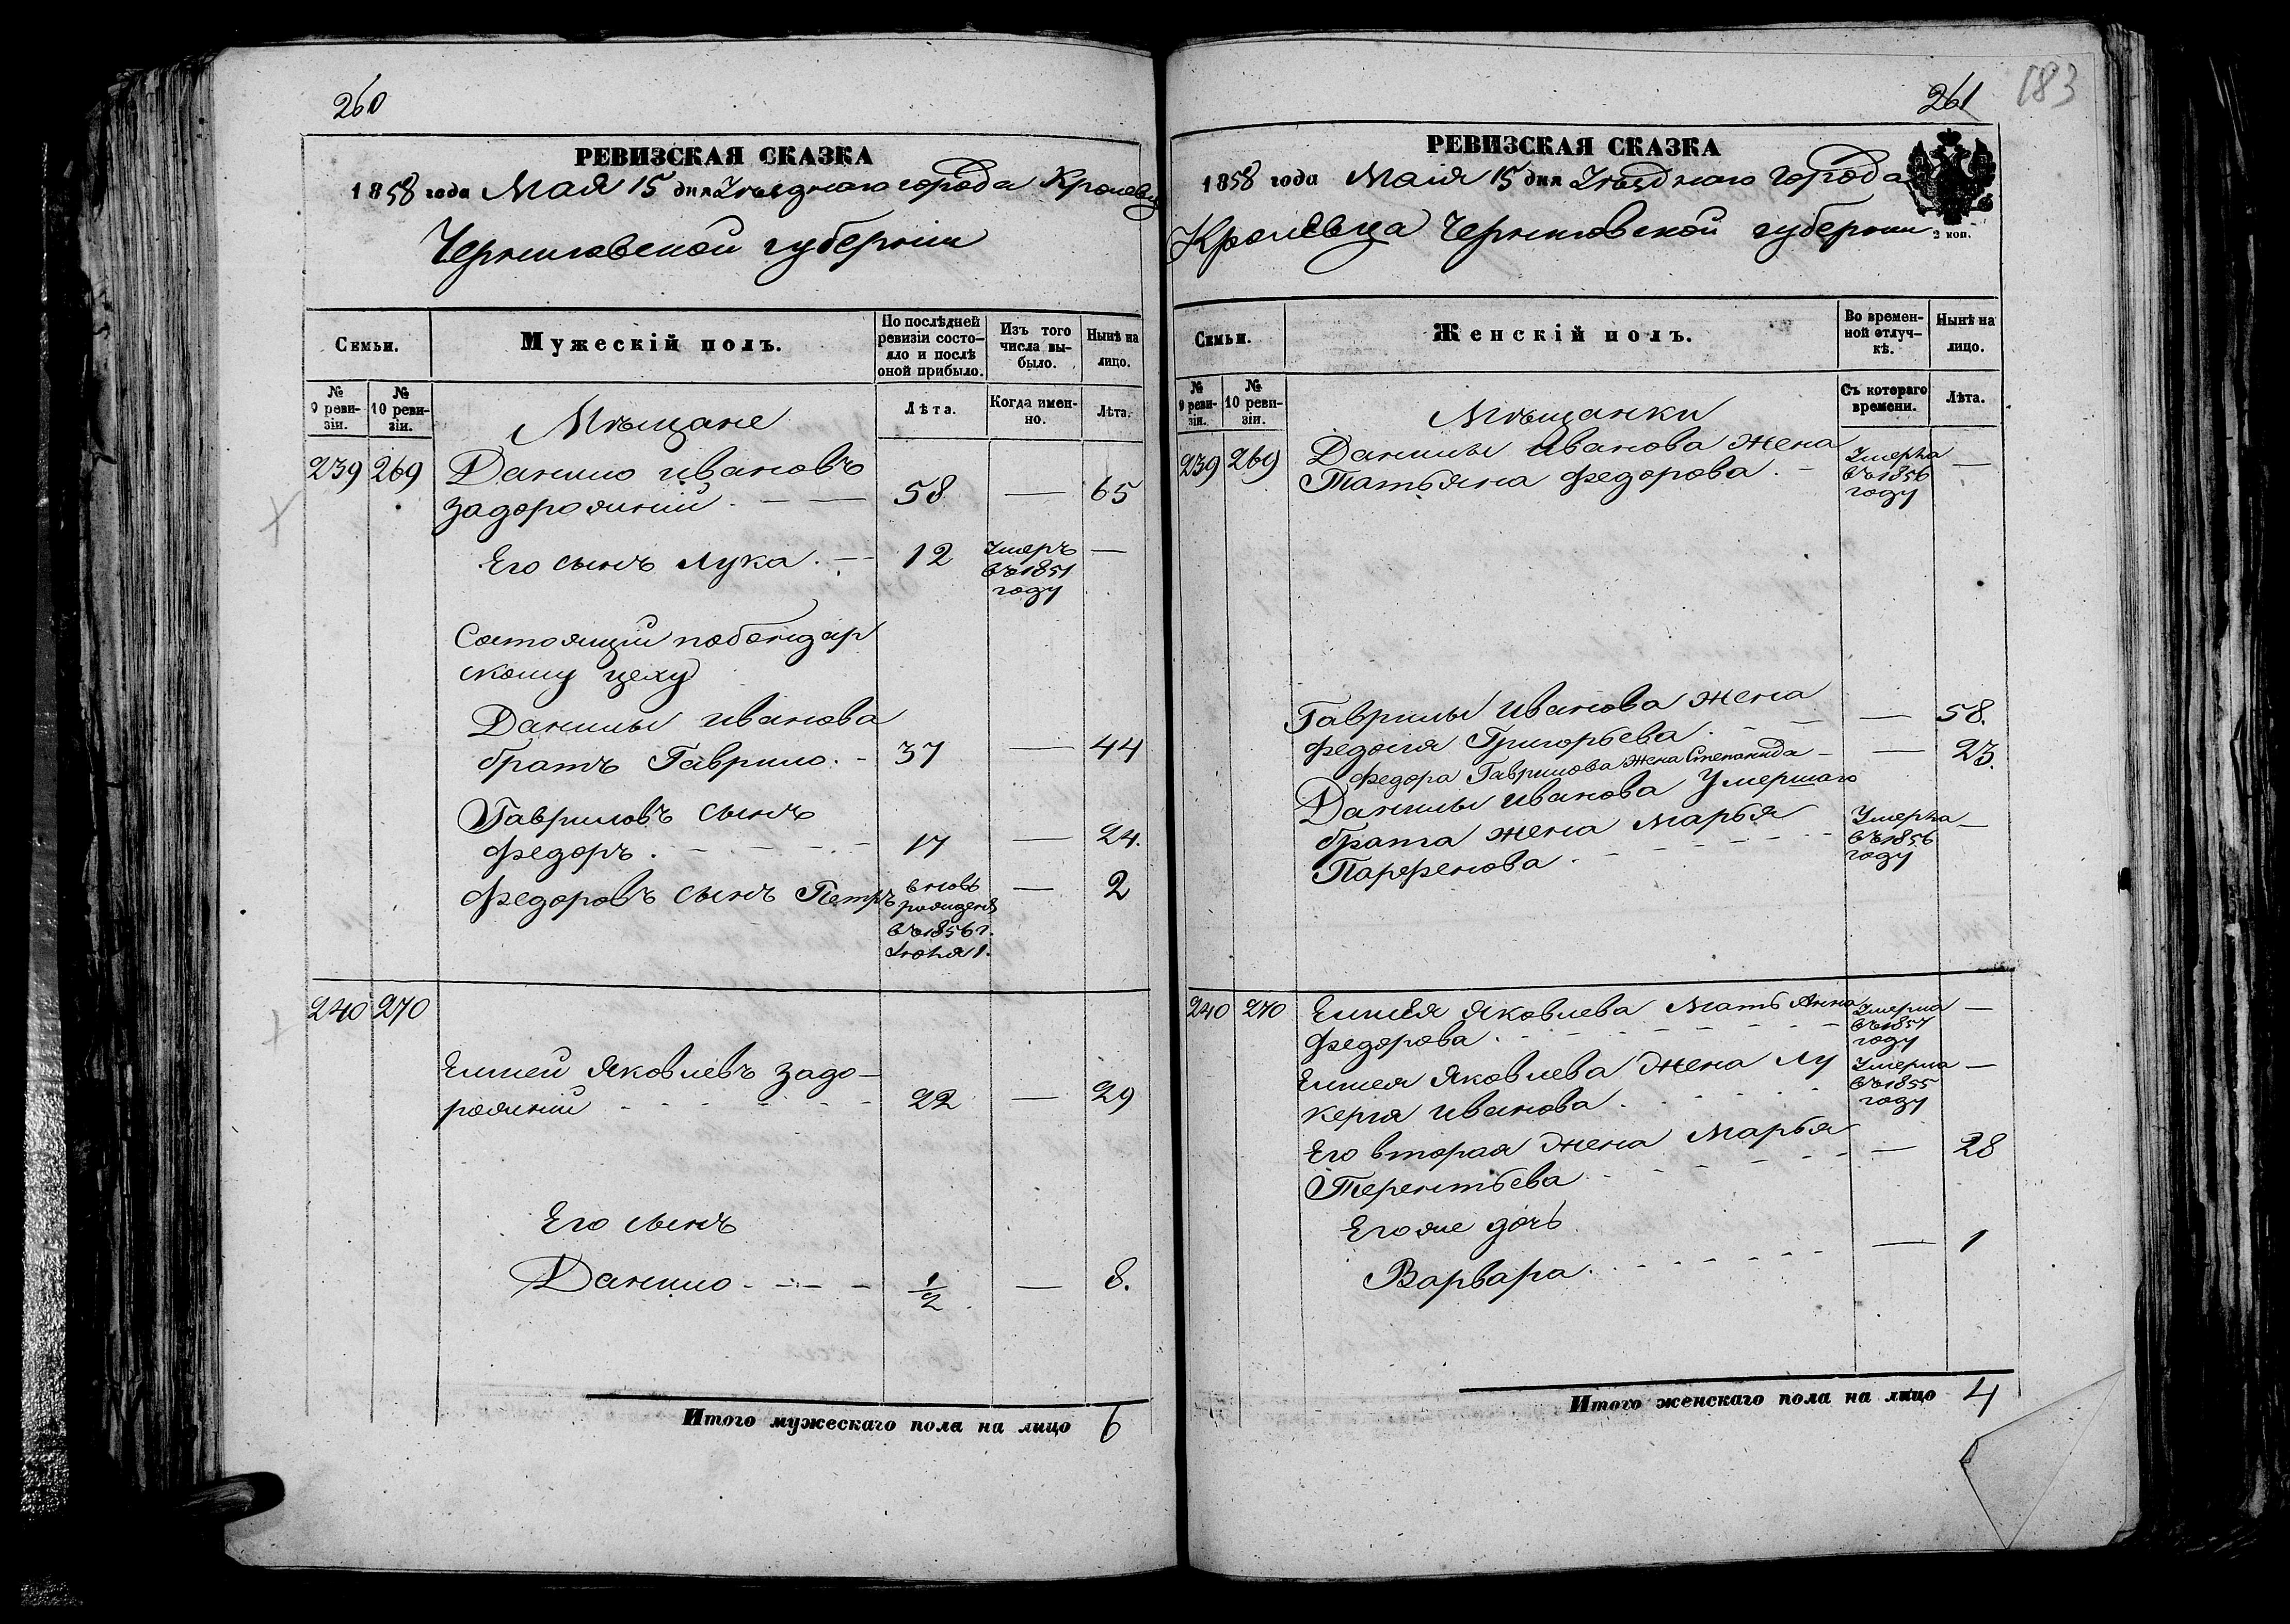 260
РЕВИЗСКАЯ СКАЗКА
1858 года Мая 15 дня Уѣзднаго города Кролевца
Черниговской губернии
Семьи.
Мужескій полъ.
По послѣдней ревизіи состояло и послѣ оной прибыло.
Изъ того числа выбыло.
Нынѣ на лицо.
№ 9 ревизіи.
№ 10 ревизіи.
Лѣта.
Когда именно.
Лѣта.
Мѣщане
239 269 Данило Ивановъ
Задорожний 58 — 65
Его сынъ Лука 12 Умеръ въ 1851 году —
Состоящий по бондар
скому цеху
Данилы Иванова
братъ Гаврило 37 — 44
Гавриловъ сынъ
Федоръ 17 — 24.
Федоровъ сынъ Петръ вновь рожденъ въ 1856 г. Июня 1. — 2
240 270
Елисей Яковлевъ Задо-
рожний 22 — 29
Его сынъ
Данило 1/2 — 8.
Итого мужескаго пола на лицо 6
261
183
РЕВИЗСКАЯ СКАЗКА
1858 года Маія 15 дня Уѣзднаго города
Кролевца Черниговской губернии
2 коп.
Семьи.
Женскій полъ.
Во временной отлучкѣ.
Нынѣ на лицо.
№ 9 ревизіи.
№ 10 ревизіи.
Съ котораго времени.
Лѣта.
Мѣщанки
239 269 Данилы Иванова жена
Татьяна Федорова Умерла въ 1856 году —
Гаврилы Иванова жена
Федосия Григорьева — 58.
Федора Гаврилова жена Степанида — 23.
Данилы Иванова Умершаго
брата жена Марья
Парфенова Умерла въ 1856 году —
240 270 Елисея Яковлева Мать Анна
Федорова Умерла въ 1857 году —
Елисея Яковлева Жена Лу
керия Иванова Умерла въ 1855 году —
Его вторая Жена Марья
Терентьева — 28
Его же дочь
Варвара — 1
Итого женскаго пола на лицо 4